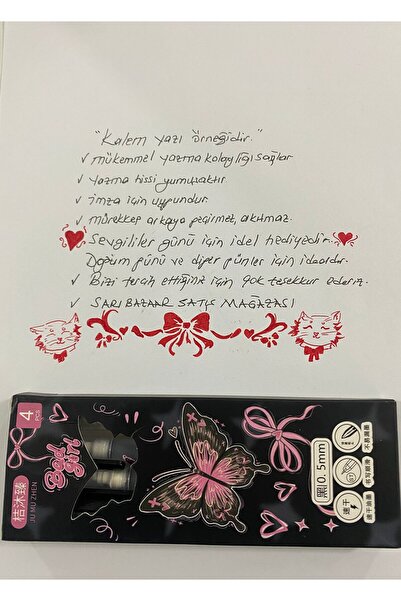 "Kalem yazı örneğidir."
✓ mükemmel yazma kolaylığı sağlar
✓ yazma hissi yumuşaktır.
✓ imza için uygundur.
✓ mürekkep arkaya geçirmez, akıtmaz.
Sevgililer günü için idel hediyedir.
Doğum günü ve diğer günler için idealdir.
✓ Bizi tercih ettiğiniz için çok teşekkür ederiz.
✓ SARI BAZAAR SATIŞ MAĞAZASI
4 Pcs
桔沐臻
JU MU ZHEN
Bad girl
黑 0.5mm
速干
速干油墨
书写顺滑
不易漏墨